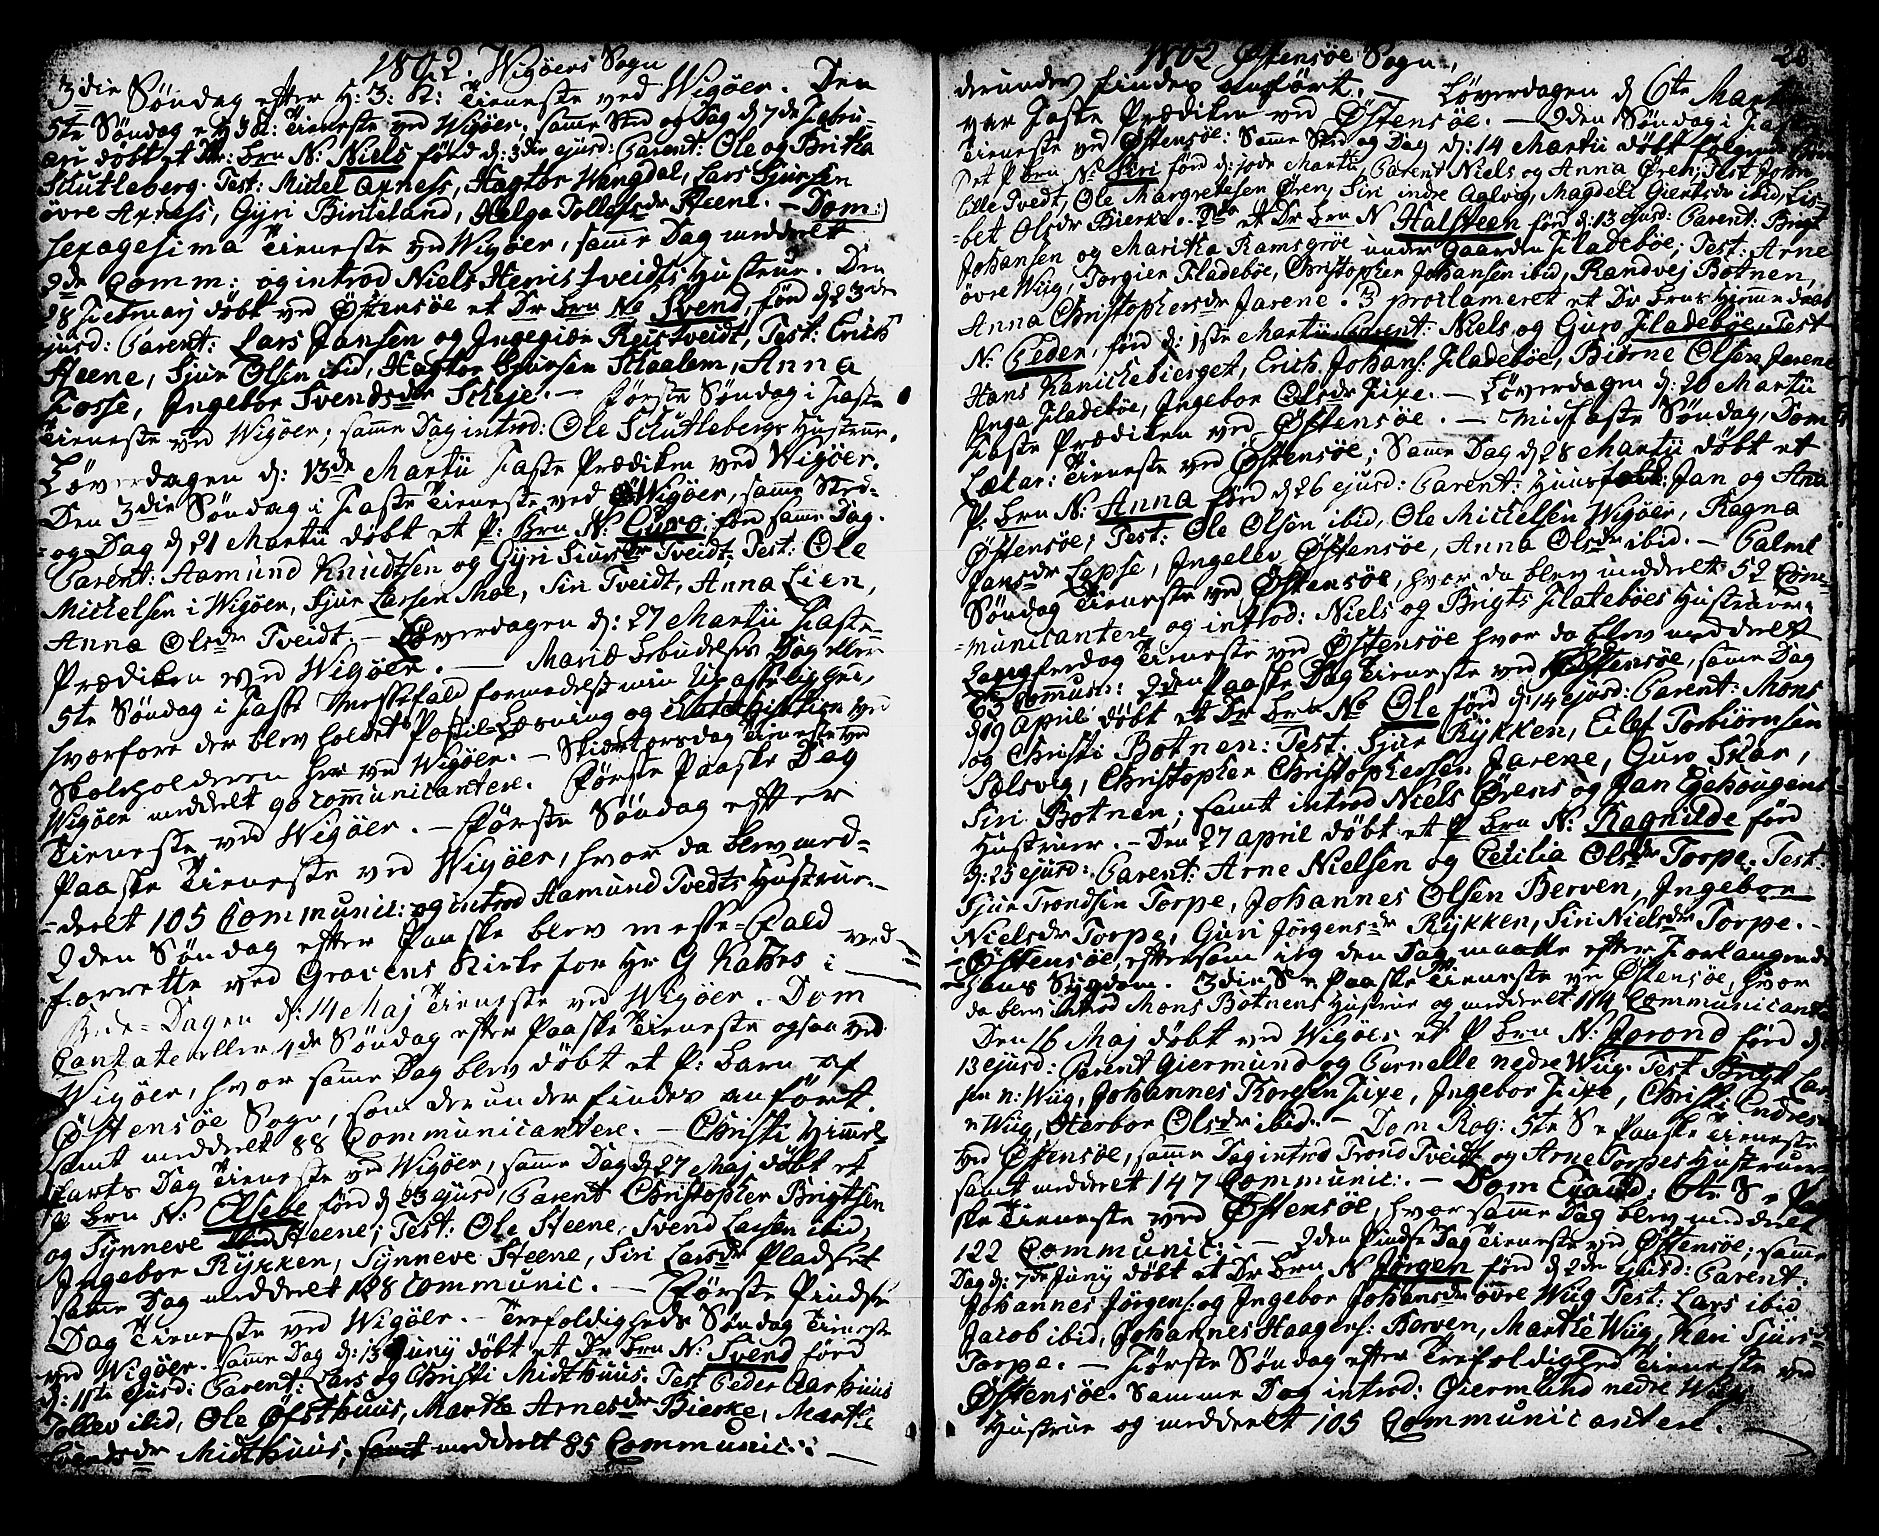 1802. Wigöers Sogn
3die Söndag efter H: 3: K: Tieneste ved Wigöer. Den
5te Söndag e H 3 K: Tieneste ved Wigöer. samme Sted og Dag d 7de Febru-
ari döbt et Dr: Brn N: Niels föd d: 3die ejusd: Parent: Ole og Britha
Skutleberg. Test: Mickel Axness, Hagtor Wangdal, Lars Sjursen
övre Axness, Gyri Binkeland, Helga Tollefsdr Steene. - Dom:
Sexagesima Tieneste ved Wigöer, samme Dag meddeelt
9de Comm: og introd Niels Henristveidts Hustrue. Den
28 Februarj döbt ved Östensöe et Dr Brn No Svend, föd d 23de
ejusd: Parent: Lars Jansen og Ingegier Reistveidt, Test: Erich
Steene, Sjur Olsen ibid, Hagtor Sjursen Skaalem, Anna
Fosse, Ingebor Svendsdr Skeje. - Förste Söndag i Faste
Tieneste ved Wigöer; samme Dag introd: Ole Skutlebergs Hustrue.
Löverdagen d: 13de Martii Faste Prædiken ved Wigöer.
Den 3die Söndag i Faste Tieneste ved Wigöer, samme Sted
og Dag d 21 Martii döbt et P: Brn N: Guro föd samme Dag.
Parent: Aamund Knudtsen og Gyri Siursdr Tveidt, Test: Ole
Mickelsen i Wigöer, Sjur Larsen Moe, Siri Tveidt, Anna Lien,
Anna Olsdr Tveidt. - Löverdagen d: 27 Martii Faste-
Prædiken ved Wigöer. - Mariæ Bebudelses Dag eller
5te Söndag i Faste Messefald formedelst min Upasselighed,
hvorfore der blev holdet Postil-Læsning og Catechisation ved
Skoleholderen her ved Wigöer. - Skiertorsdag Tieneste ved
Wigöer meddeelt 90 Communicantere. Förste Paaske Dag
Tieneste ved Wigöer. - Förste Söndag efter
Paaske Tieneste ved Wigöer, hvor da blev med-
-deelt 105 Communic: og introd Aamund Tvedts Hustrue. -
2den Söndag efter Paaske blev messe-Fald ved
forrette ved Gravens Kirke for Hr G Kahrs i
Bede-Dagen d: 14 Maj Tieneste ved Wigöer. Dom
Cantate eller 4de Söndag efter Paaske Tieneste ogsaa ved
Wigöer, hvor samme Dag blev döbt et P: Barn af
Östensöe Sogn, som derunder findes anfört.
samt meddeelt 88 Communicantere. - Christi Himmel
Farts Dag Tieneste ved Wigöer, samme Dag d 27 Maj döbt et
P Brn N: Elsebe föd d 23 ejusd, Parent Christopher Brigtsen
og Synneve Steene; Test: Ole Steene, Svend Larsen ibid,
Ingebor Rykken, Synneve Steene, Siri Larsdr Pladset
samme Dag meddeelt 128 Communic. - Förste Pindse
Dag Tieneste ved Wigöer. - Trefoldigheds Söndag Tieneste
ved Wigöer. samme Dag d: 13 Junij döbt et Dr Brn N: Svend föd
d: 11te ejusd: Parent: Lars og Christi Midthuus. Test Peder Aarhuus
Tollev ibid, Ole Öfsthuus, Marthe Arnesdr Bierke, Marthe
Svendsdr Midthuus; samt meddeelt 85 Communic: -
1802 Östensöe Sogn.
28
derundes findes anfört. - Löverdagen d 6te Martii
var Faste Prædiken ved Östensöe. - 2den Söndag i Faste
Tieneste ved Östensöe: Samme Sted og Dag d: 14 Martii döbt fölgende Börn
Det P Brn N: Siri föd d: 10de Martii, Parent Niels og Anna Ören; Test John
lille Tvedt, Ole Margretesen Ören, Siri indre Aalvig, Magdeli Giertsdr ibid, Lis-
-bet Olsdr Bierke. D: et Dr Brn N Halsteen föd d: 13 ejusd: Parent: Brigt
Johansen og Maritha Ramsgröe under Gaarden Fladeböe; Test: Arne
övre Wiig, Torgier Fladeböe, Christopher Johansen ibid, Randvej Botnen,
Anna Christophersdr Jarene. 3 proclameret et Dr Brns Hjemmedaab
N: Peder, föd d: 1ste Martii Parent: Niels og Guro Fladeböe, Test
Hans Kanickebierget, Erich Johans: Fladeböe, Biörne Olsen Jarene
Inga Fladeböe, Ingebor Olsdr Fixe. - Löverdagen d: 20 Martii
Faste Prædiken ved Östensöe. - Midfaste Söndag, Dom
Lætar: Tieneste ved Östensöe; Samme Dag d 28 Martii döbt et
P: Brn N: Anna föd d 26 ejusd: Parent: Huusfolk Jan og Ana
Östensöe; Test: Ole Olsen ibid, Ole Mickelsen Wigöer, Ragna
Jansdr Lepse, Ingelev Östensöe, Anna Olsdr ibid. - Palme
Söndag Tieneste ved Östensöe, hvor da blev meddeelt 52 Com-
-municantere og introd: Niels og Brigts Flateböes Hustruer.
Langfredag Tieneste ved Östensöe hvor da blev meddeelt
63 Comun: 2den Paaske Dag Tieneste ved Östensöe, samme Dag
d 19 April döbt et Dr Brn No Ole föd d: 14 ejusd: Parent: Mons
og Christi Botnen: Test: Sjur Rykken, Eilef Torbiörnsen
Sælsvig, Christopher Christophersen Jarene, Guro Skar,
Siri Botnen; samt introd Niels Örens og Jan Egehougens
Hustruer. - Den 27 April döbt et P Brn N: Ragnilde föd
d: 25 ejusd: Parent: Arne Nielsen og Cecilia Olsdr Torpe. Test:
Sjur Trondsen Torpe, Johannes Olsen Berven, Ingebor
Nielsdr Torpe, Guri Jörgensdr Rykken, Siri Nielsdr Torpe. -
Östensöe eftersom jeg den Dag maatte efter Forlangende
hans Sygdom. 3die S e Paaske Tieneste ved Östensöe, hvor
da blev introd Mons Botnens Hustrue og meddeelt 114 Communicantere
Den 16 Maj döbt ved Wigöer et P Brn N: Jorond föd d
13 ejusd: Parent Giermund og Pernelle nedre Wiig. Test Brigt Lar-
sen n: Wiig, Johannes Torsen Fixe, Ingebor Fixe, Christi Endres-
n Wiig, Herbor Olsdr ibid. - Dom Rog: 5te S e Paaske Tieneste
ved Östensöe, samme Dag introd Trond Tveidt og Arne Torpes Hustruer
samt meddeelt 147 Communic: - Dom Exaud: 6te S e Paa
ske Tieneste ved Östensöe, hvor samme Dag blev meddeelt
122 Communic: - 2den Pindse Dag Tieneste ved Östensöe; samme
Dag d: 7de Junij döbt et Dr Brn N Jörgen föd d 2de ejusd: Parent:
Johannes Jörgens: og Ingebor Johansdr övre Wiig Test: Lars ibid
Jacob ibid, Johannes Haagens: Berven, Marthe Wiig, Kari Sjurs-
Torpe. - Förste Söndag efter Trefoldighed Tieneste ved
Östensöe. Samme Dag introd: Giermund nedre Wiigs
Hustrue og meddeelt 105 Communicantere. -